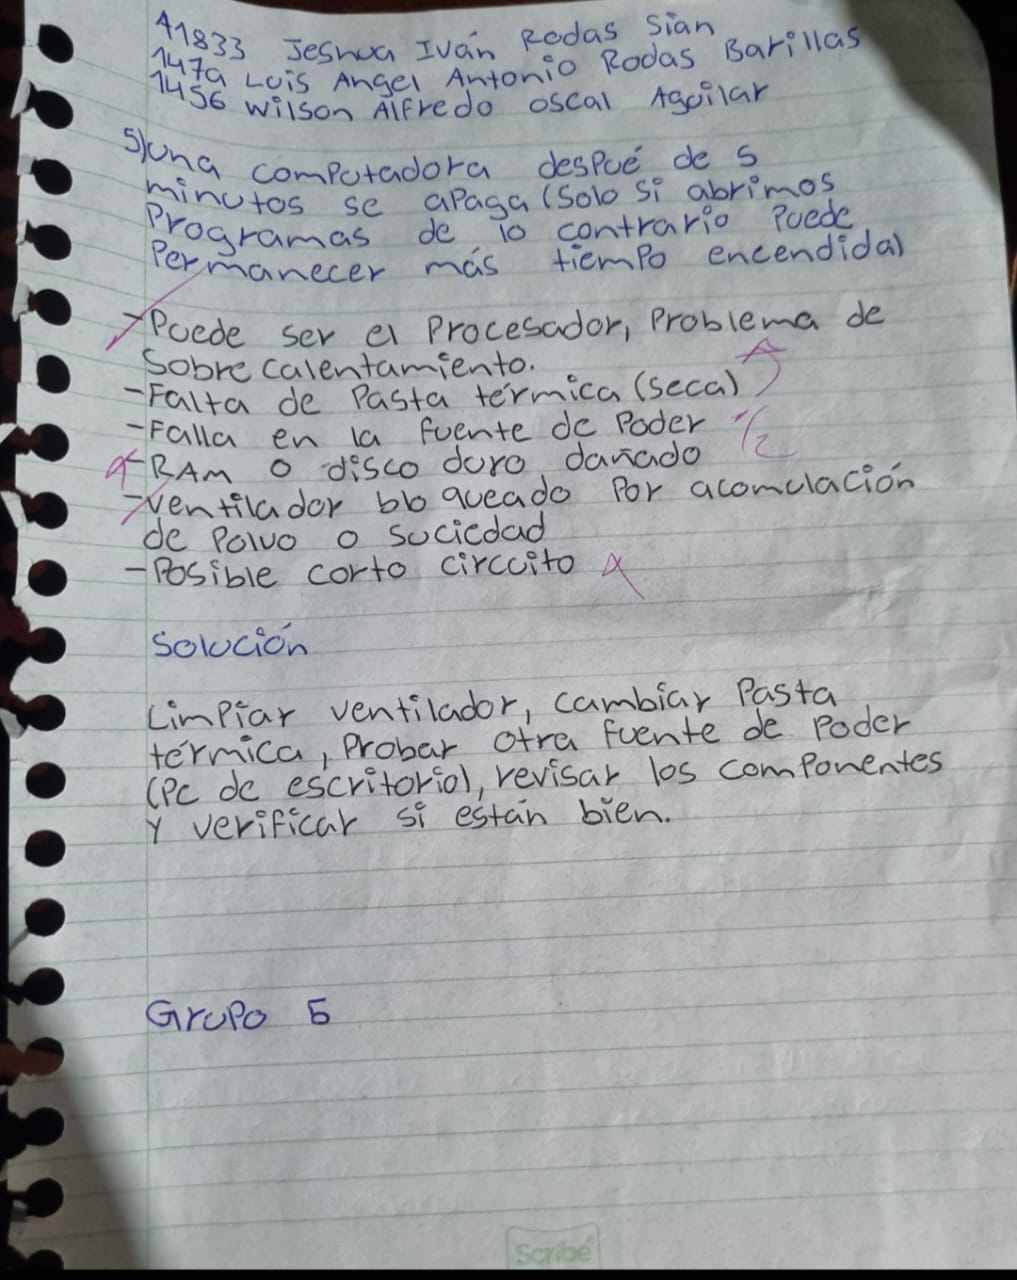 A1833 Jeshua Iván Rodas Sian
147a Luis Angel Antonio Rodas Barillas
1456 Wilson Alfredo oscal Aguilar
5) una computadora despué de 5
minutos se apaga (solo si abrimos
Programas de lo contrario Puede
Permanecer más tiempo encendida)
-Puede ser el Procesador, Problema de
sobre calentamiento.
-Falta de Pasta térmica (seca)
-Falla en la fuente de Poder 1/2
-RAM o disco duro dañado
-ventilador bloqueado Por acomulación
de Polvo o suciedad
-Posible corto circuito
Solución
Limpiar ventilador, cambiar Pasta
térmica, Probar otra fuente de Poder
(Pc de escritorio), revisar los componentes
y verificar si están bien.
Grupo 5
Scribe